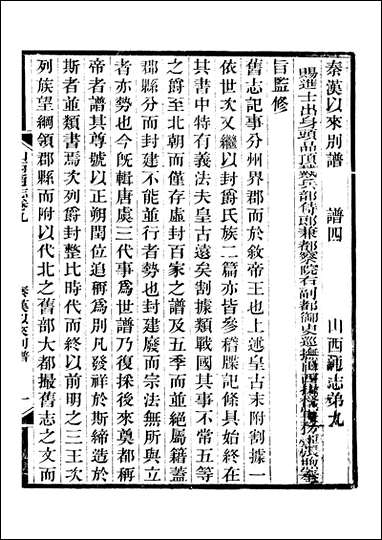 秦漢以來別譜　譜四　山西通志第九
賜進士出身頭品頂戴兵部侍郎兼都察院右副都御史巡撫山西
旨監修
舊志記事分州界郡而於敘帝王也上述皇古末附割據一
依世次又繼以封爵氏族二篇亦皆參稽牒記條具始終在
其書中特有義法夫皇古遠矣割據類戰國其事不常五等
之爵至北朝而僅存虛封百家之譜及五季而並絕屬籍蓋
郡縣分而封建不能並行者勢也封建廢而宗法無所與立
者亦勢也今既輯唐虞三代事爲世譜乃復採後來奠都稱
帝者譜其尊號以正朔閏位追稱爲別凡發祥於斯締造於
斯者並類書焉次列爵封整比時代而終以前明之三王次
列族望綱領郡縣而附以代北之舊部大都撮舊志之文而
秦漢以來別譜　一